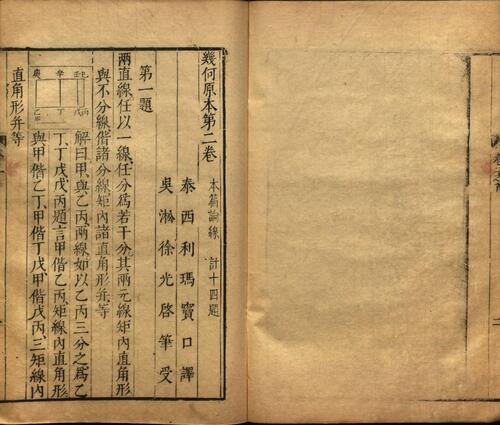 幾何原本第二卷 本篇論線 計十四題
泰西利瑪竇口譯
吳淞徐光啓筆受
第一題
兩直線任以一線任分爲若干分其兩元線矩內直角形
與不分線偕諸分線矩內諸直角形并等
解曰甲與乙丙兩線如以乙丙三分之爲乙
丁丁戊戊丙題言甲偕乙丙矩線內直角形
與甲偕乙丁甲偕丁戊甲偕戊丙三矩線內
直角形并等
庚 辛 壬
丁 戊 丙